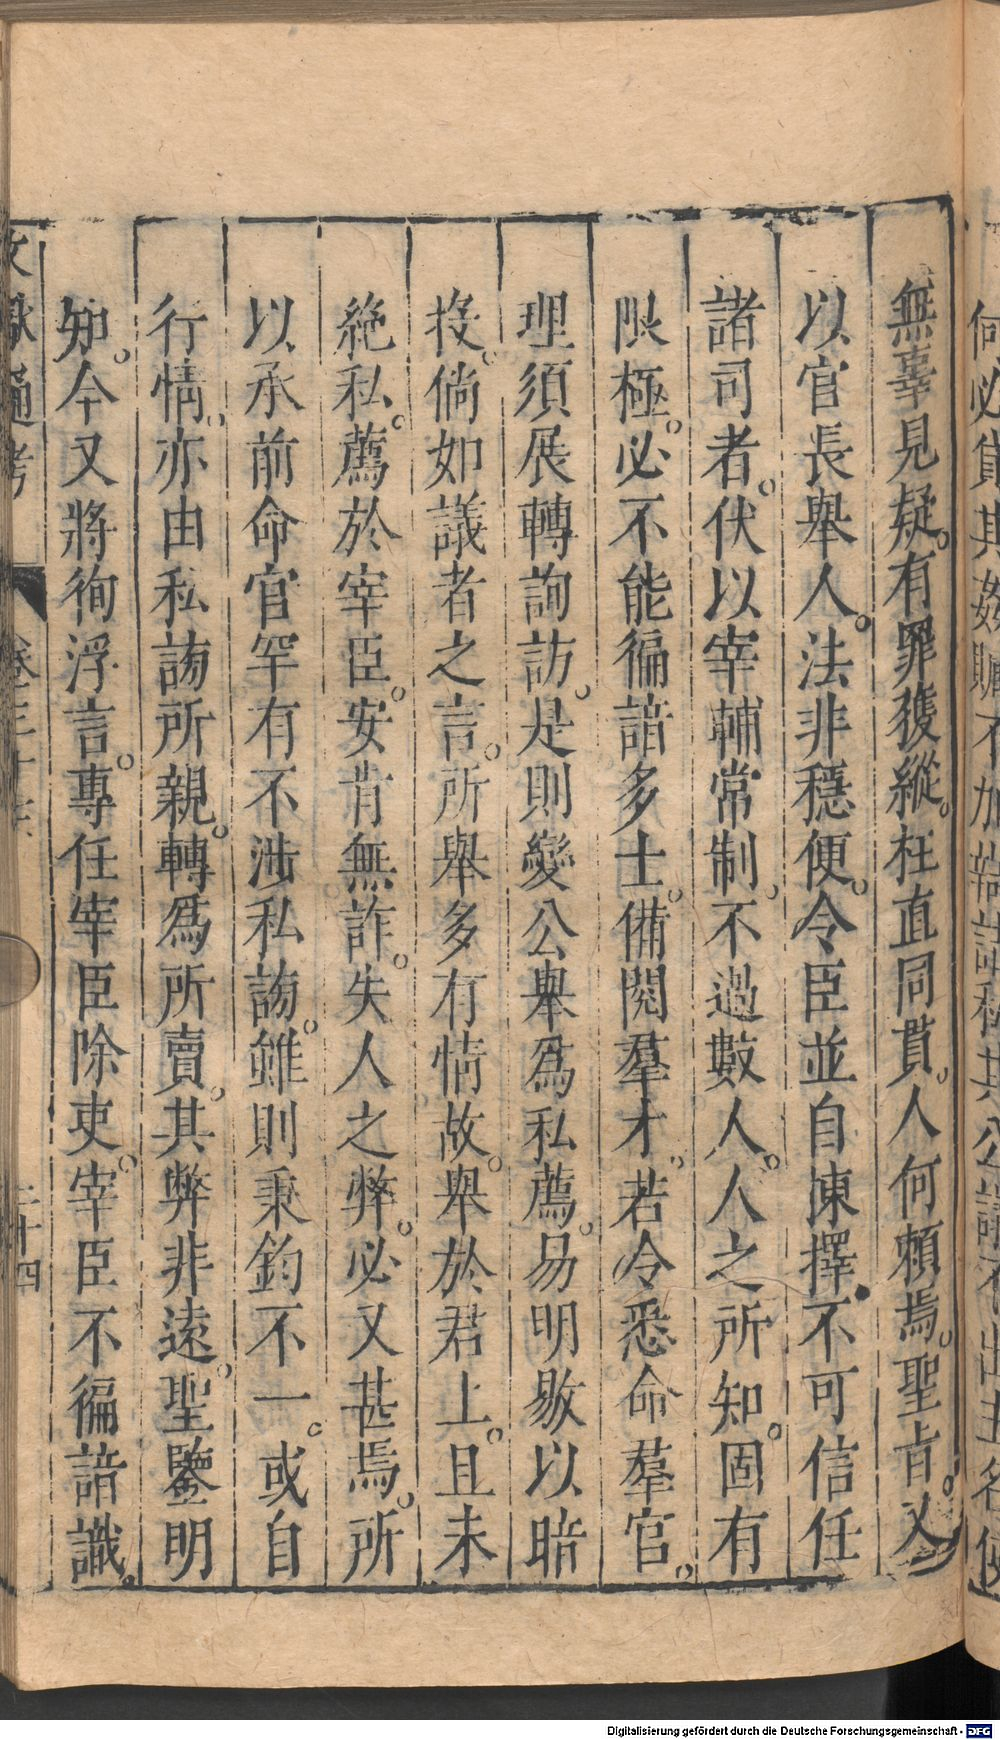 無辜見疑。有罪獲縱。枉直同貫。人何賴焉。聖旨又
以官長舉人。法非穩便。令臣並自揀擇。不可信任
諸司者。伏以宰輔常制。不過數人。人之所知。固有
限極。必不能徧諳多士。備閱羣才。若令悉命羣官。
理須展轉詢訪。是則變公舉爲私薦。易明敭以暗
投。倘如議者之言。所舉多有情故。舉於君上。且未
絶私。薦於宰臣。安肯無詐。失人之弊。必又甚焉。所
以承前命官罕有不涉私謗。雖則秉鈞不一。或自
行情。亦由私訪所親。轉爲所賣。其弊非遠。聖鑒明
知。今又將徇浮言。專任宰臣除吏。宰臣不徧諳識。
文獻通考
卷三十六
二十四
Digitalisierung gefördert durch die Deutsche Forschungsgemeinschaft - DFG